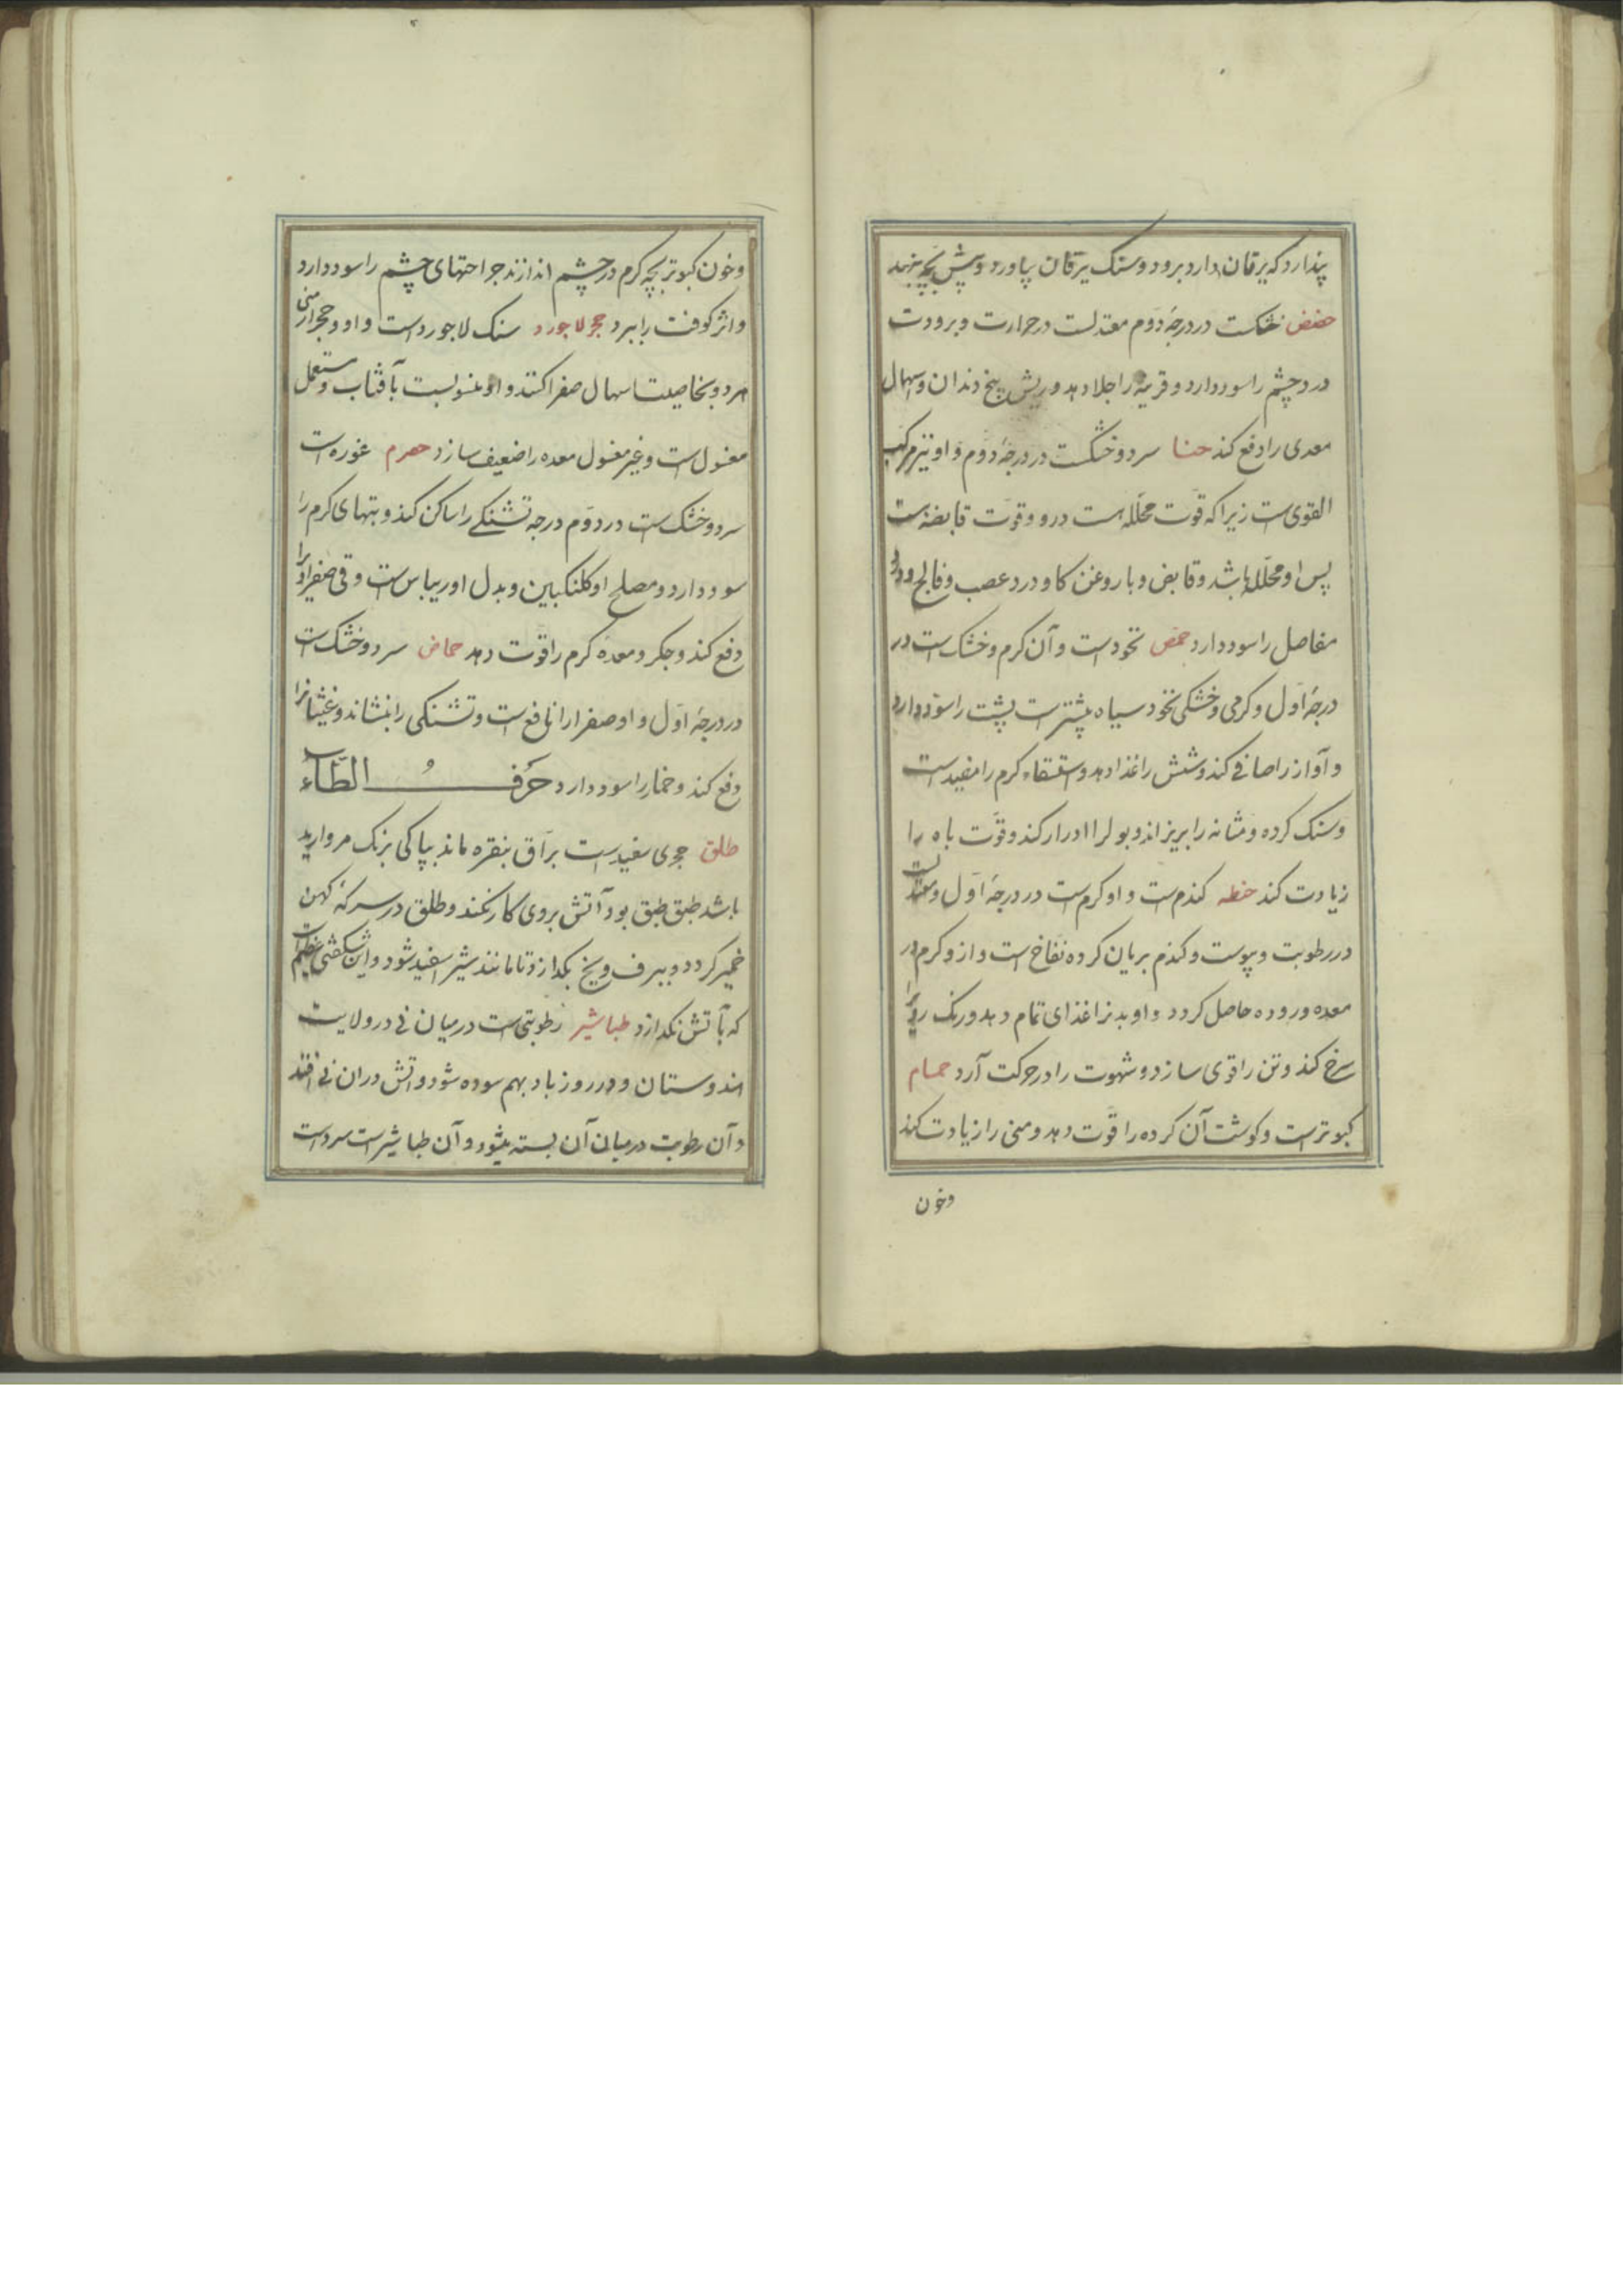 پندارد که یرقان دارد برود و سنک یرقان بیاورد و پیش بچه بنهد
حضض خشکست در درجۀ دوم معتدلست در حرارت و برودت
درد چشم را سود دارد و قرنیه را جلا دهد و ریش بیخ دندان و اسهال
معدی را دفع کند حنا سرد و خشکست در درجۀ دوم و او نیز مرکب
القوی است زیرا که قوت محلله است درو و قوت قابضه است
پس او محلل باشد و قابض و با روغن کاو درد عصب و فالج و درد
مفاصل را سود دارد حمص نخود است و آن کرم و خشک است در
درجۀ اول و کرمی و خشکی نخود سیاه بیشتر است پشت را سود دارد
و آواز را صافی کند و شش را غذا دهد و استسقاء کرم را مفید است
و سنک کرده و مثانه را بریزاند و بول را ادرار کند و قوت باه را
زیادت کند حنطه کندم است و او کرم است در درجۀ اول و معتدلست
در رطوبت و یبوست و کندم بریان کرده نفاخ است و ازو کرم در
معده و روده حاصل کردد و او بدنرا غذای تمام دهد و رنک روی را
سرخ کند و تن را قوی سازد و شهوت را در حرکت آرد حمام
کبوتر است و کوشت آن کرده را قوت دهد و منی را زیادت کند
وخون
وخون کبوتر بچه کرم در چشم اندازند جراحتهای چشم را سود دارد
و اثر کوفت را ببرد حجر لاجورد سنک لاجورد است و او و حجر ارمنی
هر دو بخاصیت اسهال صفرا کنند و او منسوبست بآفتاب و مستعمل
مغسول است و غیر مغسول معده را ضعیف سازد حصرم غوره است
سرد و خشک است در دوم درجه تشنکی را ساکن کند و تبهای کرم را
سود دارد و مصلح او کلنکبین و بدل او ریباس است و قی صفراوی را
دفع کند و جکر و معدۀ کرم را قوت دهد حماض سرد و خشک است
در درجۀ اول و او صفرا را نافع است و تشنکی را بنشاند و غثیانرا
دفع کند و خمار را سود دارد حرف الطاء
طلق حجری سفید است براق بنقره ماند بپاکی برنک مروارید
باشد طبق طبق بود آتش بروی کار نکند و طلق در سرکۀ کهن
خمیر کردد و ببرف و یخ بکدازد تا مانند شیر سفید شود و این شکفتی عظیم است
که بآتش نکدازد طباشیر رطوبتی است در میان نی در ولایت
هندوستان و در روز باد بهم سوده شود و آتش دران نی افتد
و آن رطوبت در میان آن بسته میشود و آن طباشیر است سرد است